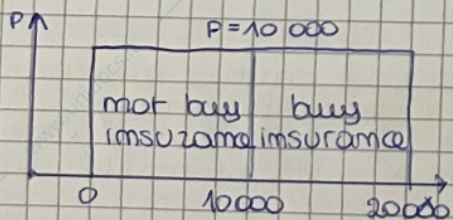 P
P=10 000
not buy buy
insurance insurance
0 10000 20000